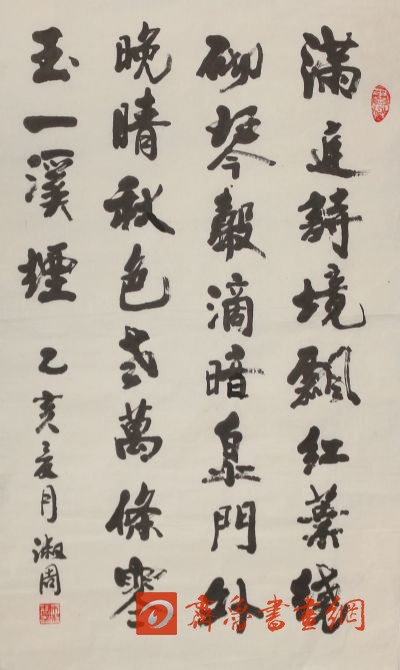 滿庭詩境飄紅葉繞
砌琴聲滴暗泉門外
晚晴秋色老萬條寒
玉一溪煙
乙亥夏月淑周
齊魯書畫網